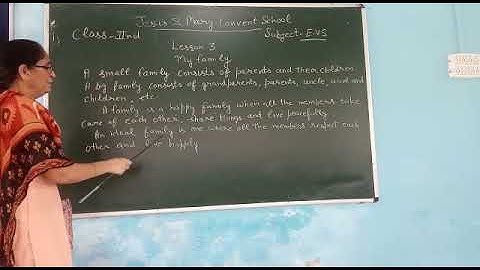 Jesus & Mary Convent School
Class-IInd Subject-E.V.S
Lesson 3
My family
A small family consists of parents and their children.
A big family consists of grandparents, parents, uncle, aunt and
children, etc.
A family is a happy family when all the members take
care of each other, share things and live peacefully.
An ideal family is one where all the members respect each
other and live happily